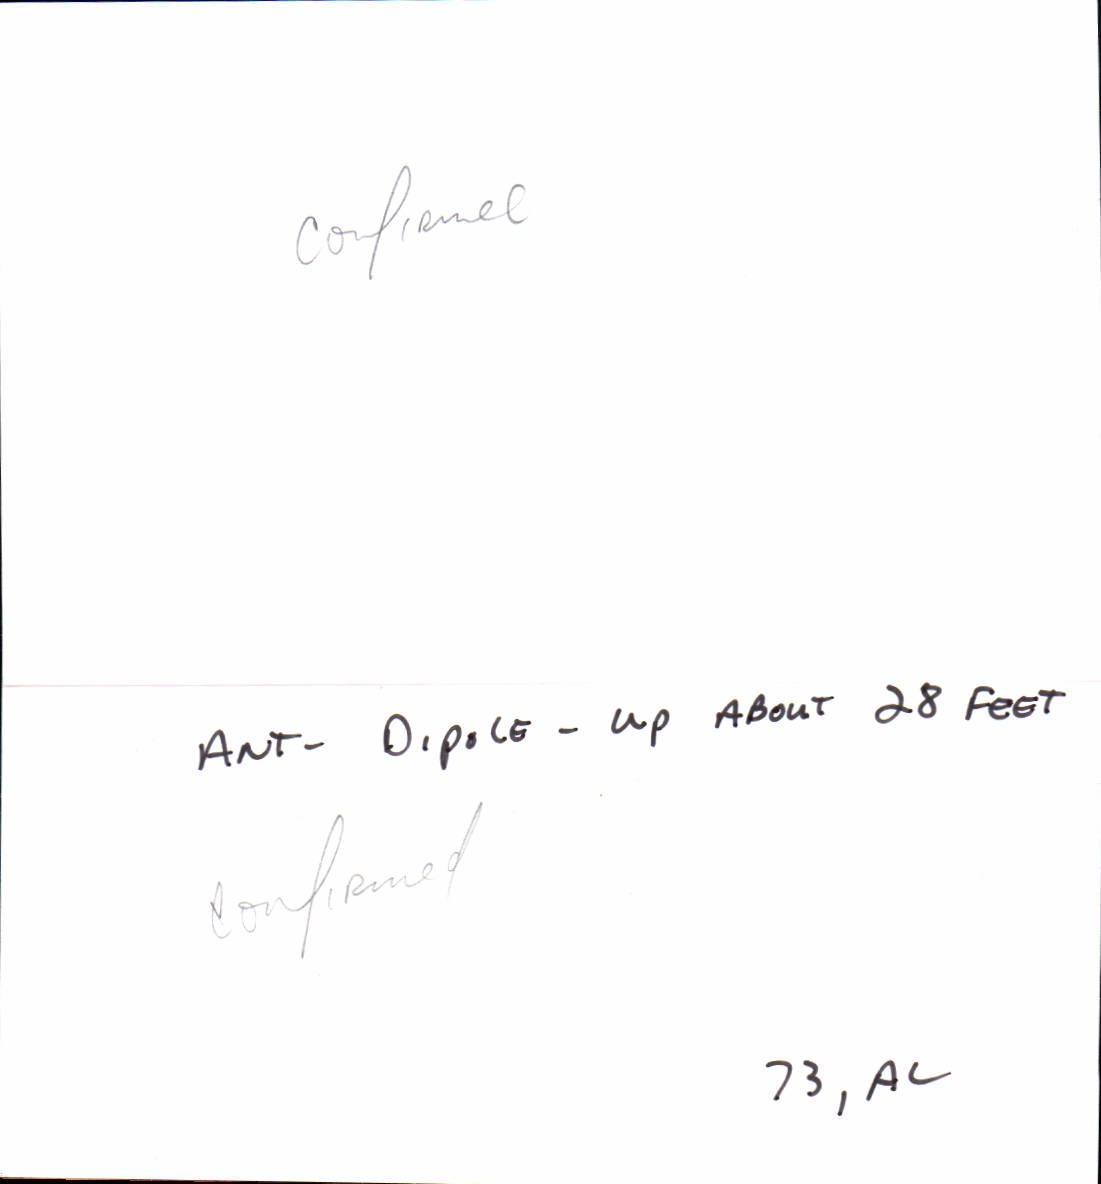 Confirmed
ANT- DIPOLE - UP ABOUT 28 FEET
Confirmed
73, AL